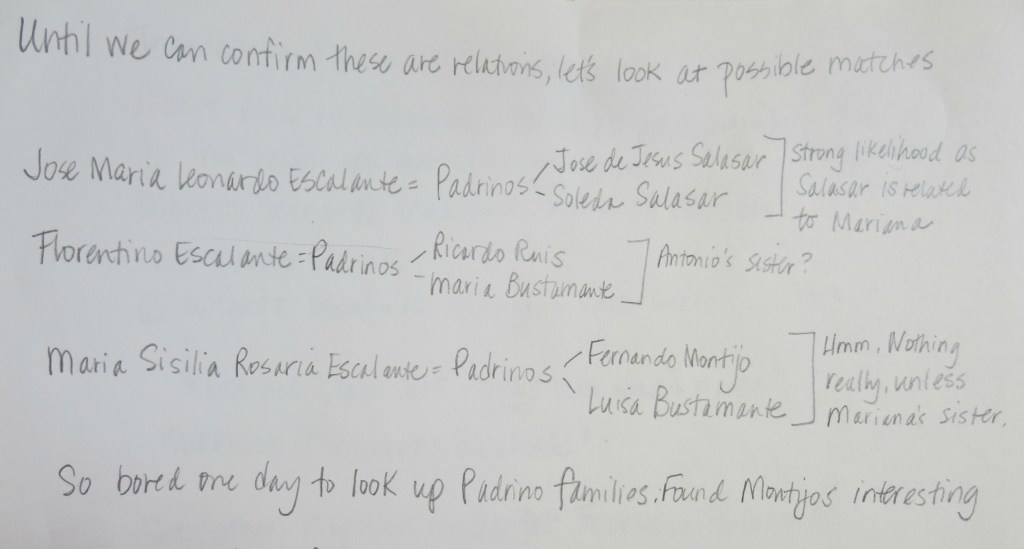 Until we can confirm these are relations, let's look at possible matches
Jose Maria Leonardo Escalante = Padrinos
Jose de Jesus Salasar
Soleda Salasar
Strong likelihood as
Salasar is related
to Mariana
Florentino Escalante = Padrinos
Ricardo Ruis
Maria Bustamante
Antonio's sister?
Maria Sisilia Rosaria Escalante = Padrinos
Fernando Montijo
Luisa Bustamante
Hmm, Nothing
really, unless
Mariana's sister.
So bored one day to look up Padrino families. Found Montijos interesting